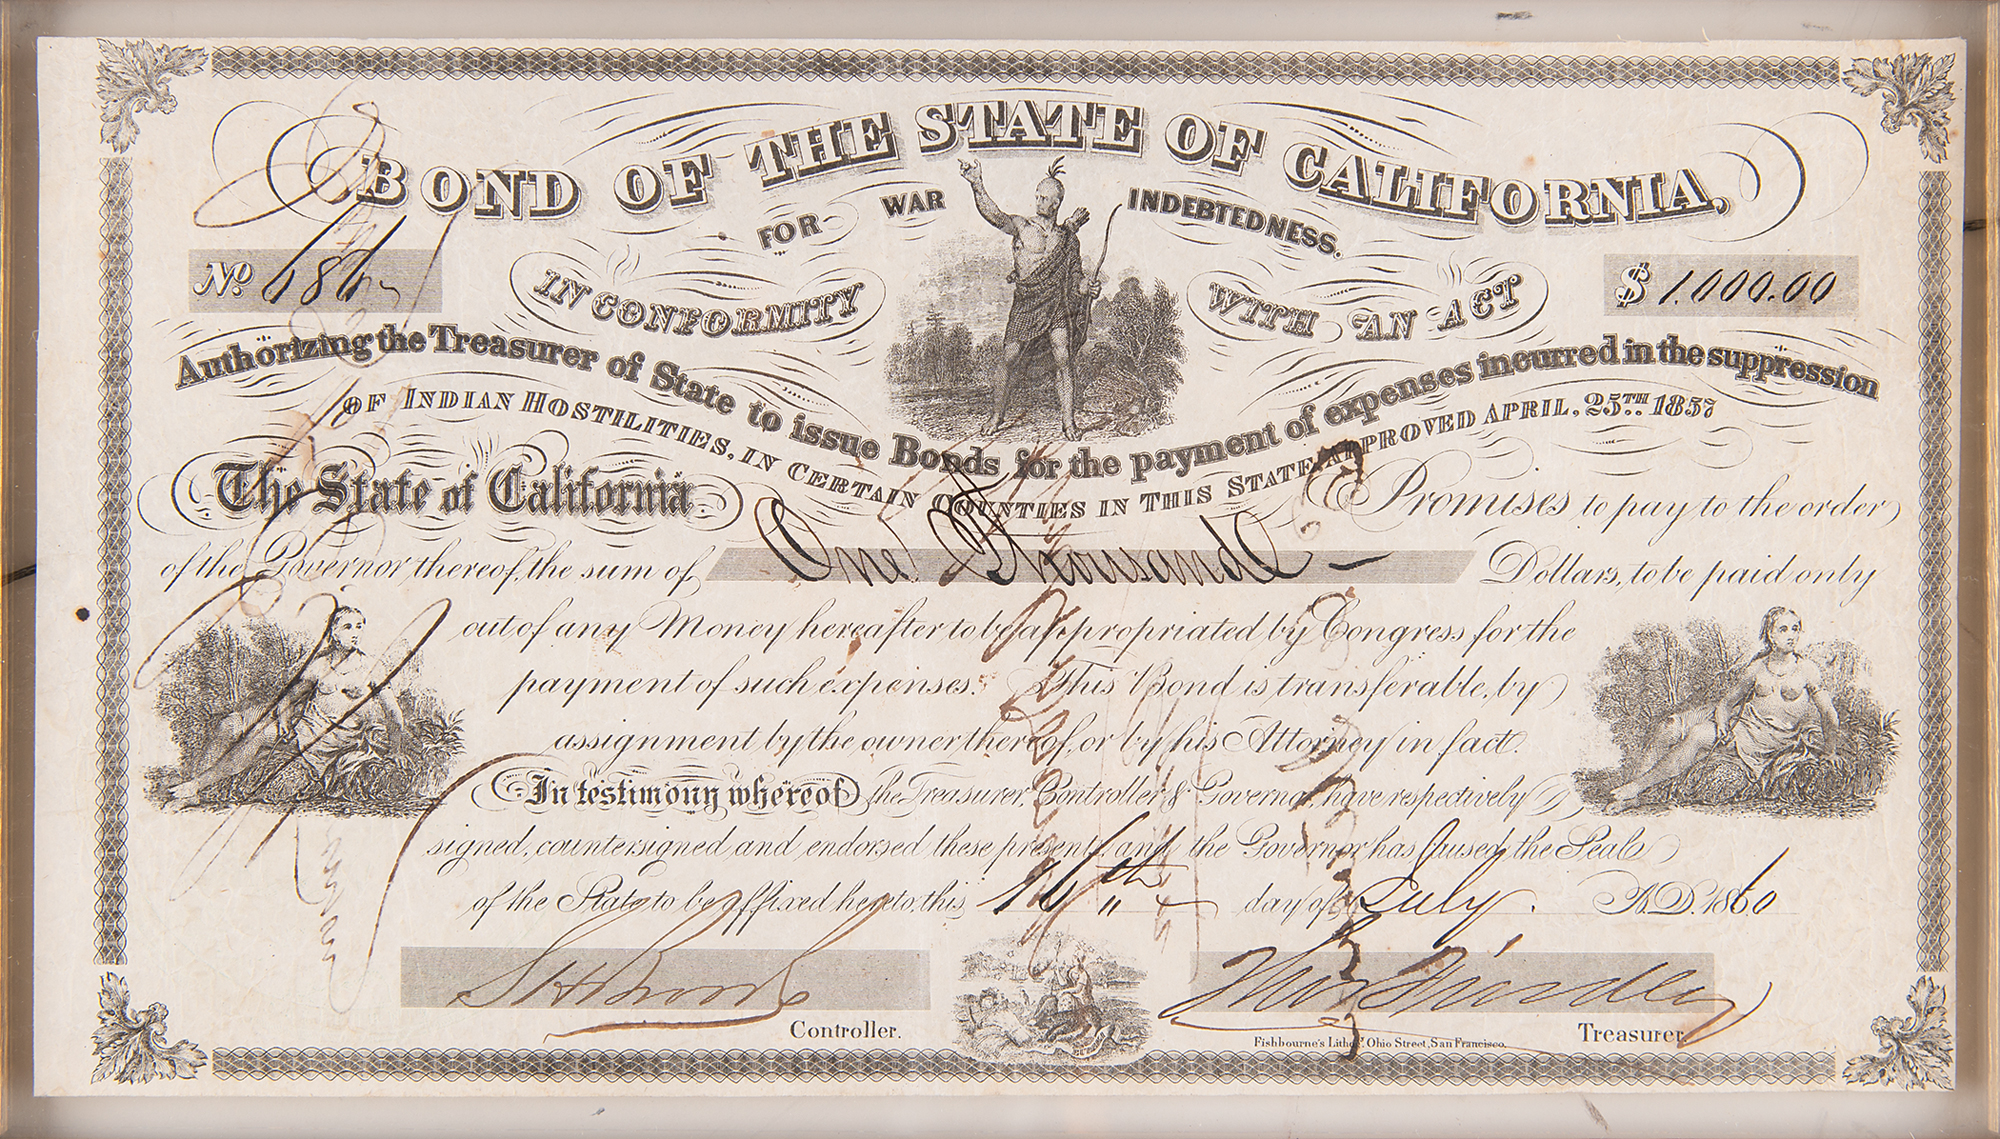 BOND OF THE STATE OF CALIFORNIA,
FOR WAR INDEBTEDNESS.
No.
$ 1.000.00
IN CONFORMITY WITH AN ACT
Authorizing the Treasurer of State to issue Bonds for the payment of expenses incurred in the suppression
OF INDIAN HOSTILITIES, IN CERTAIN COUNTIES IN THIS STATE APPROVED APRIL, 25TH. 1857
The State of California Promises to pay to the order
of the Governor thereof, the sum of One Thousand — Dollars, to be paid only
out of any Money hereafter to be appropriated by Congress for the
payment of such expenses. This Bond is transferable, by
assignment by the owner thereof, or by his Attorney in fact.
In testimony whereof the Treasurer, Controller, & Governor, have respectively
signed, countersigned and endorsed these presents, and the Governor has Caused the Seal
of the State to be affixed hereto, this 16th day of July. A.D. 1860
S H Brooks Thos Findley
Controller. Treasurer.
Fishbourne's Lithoy. Ohio Street, San Francisco.